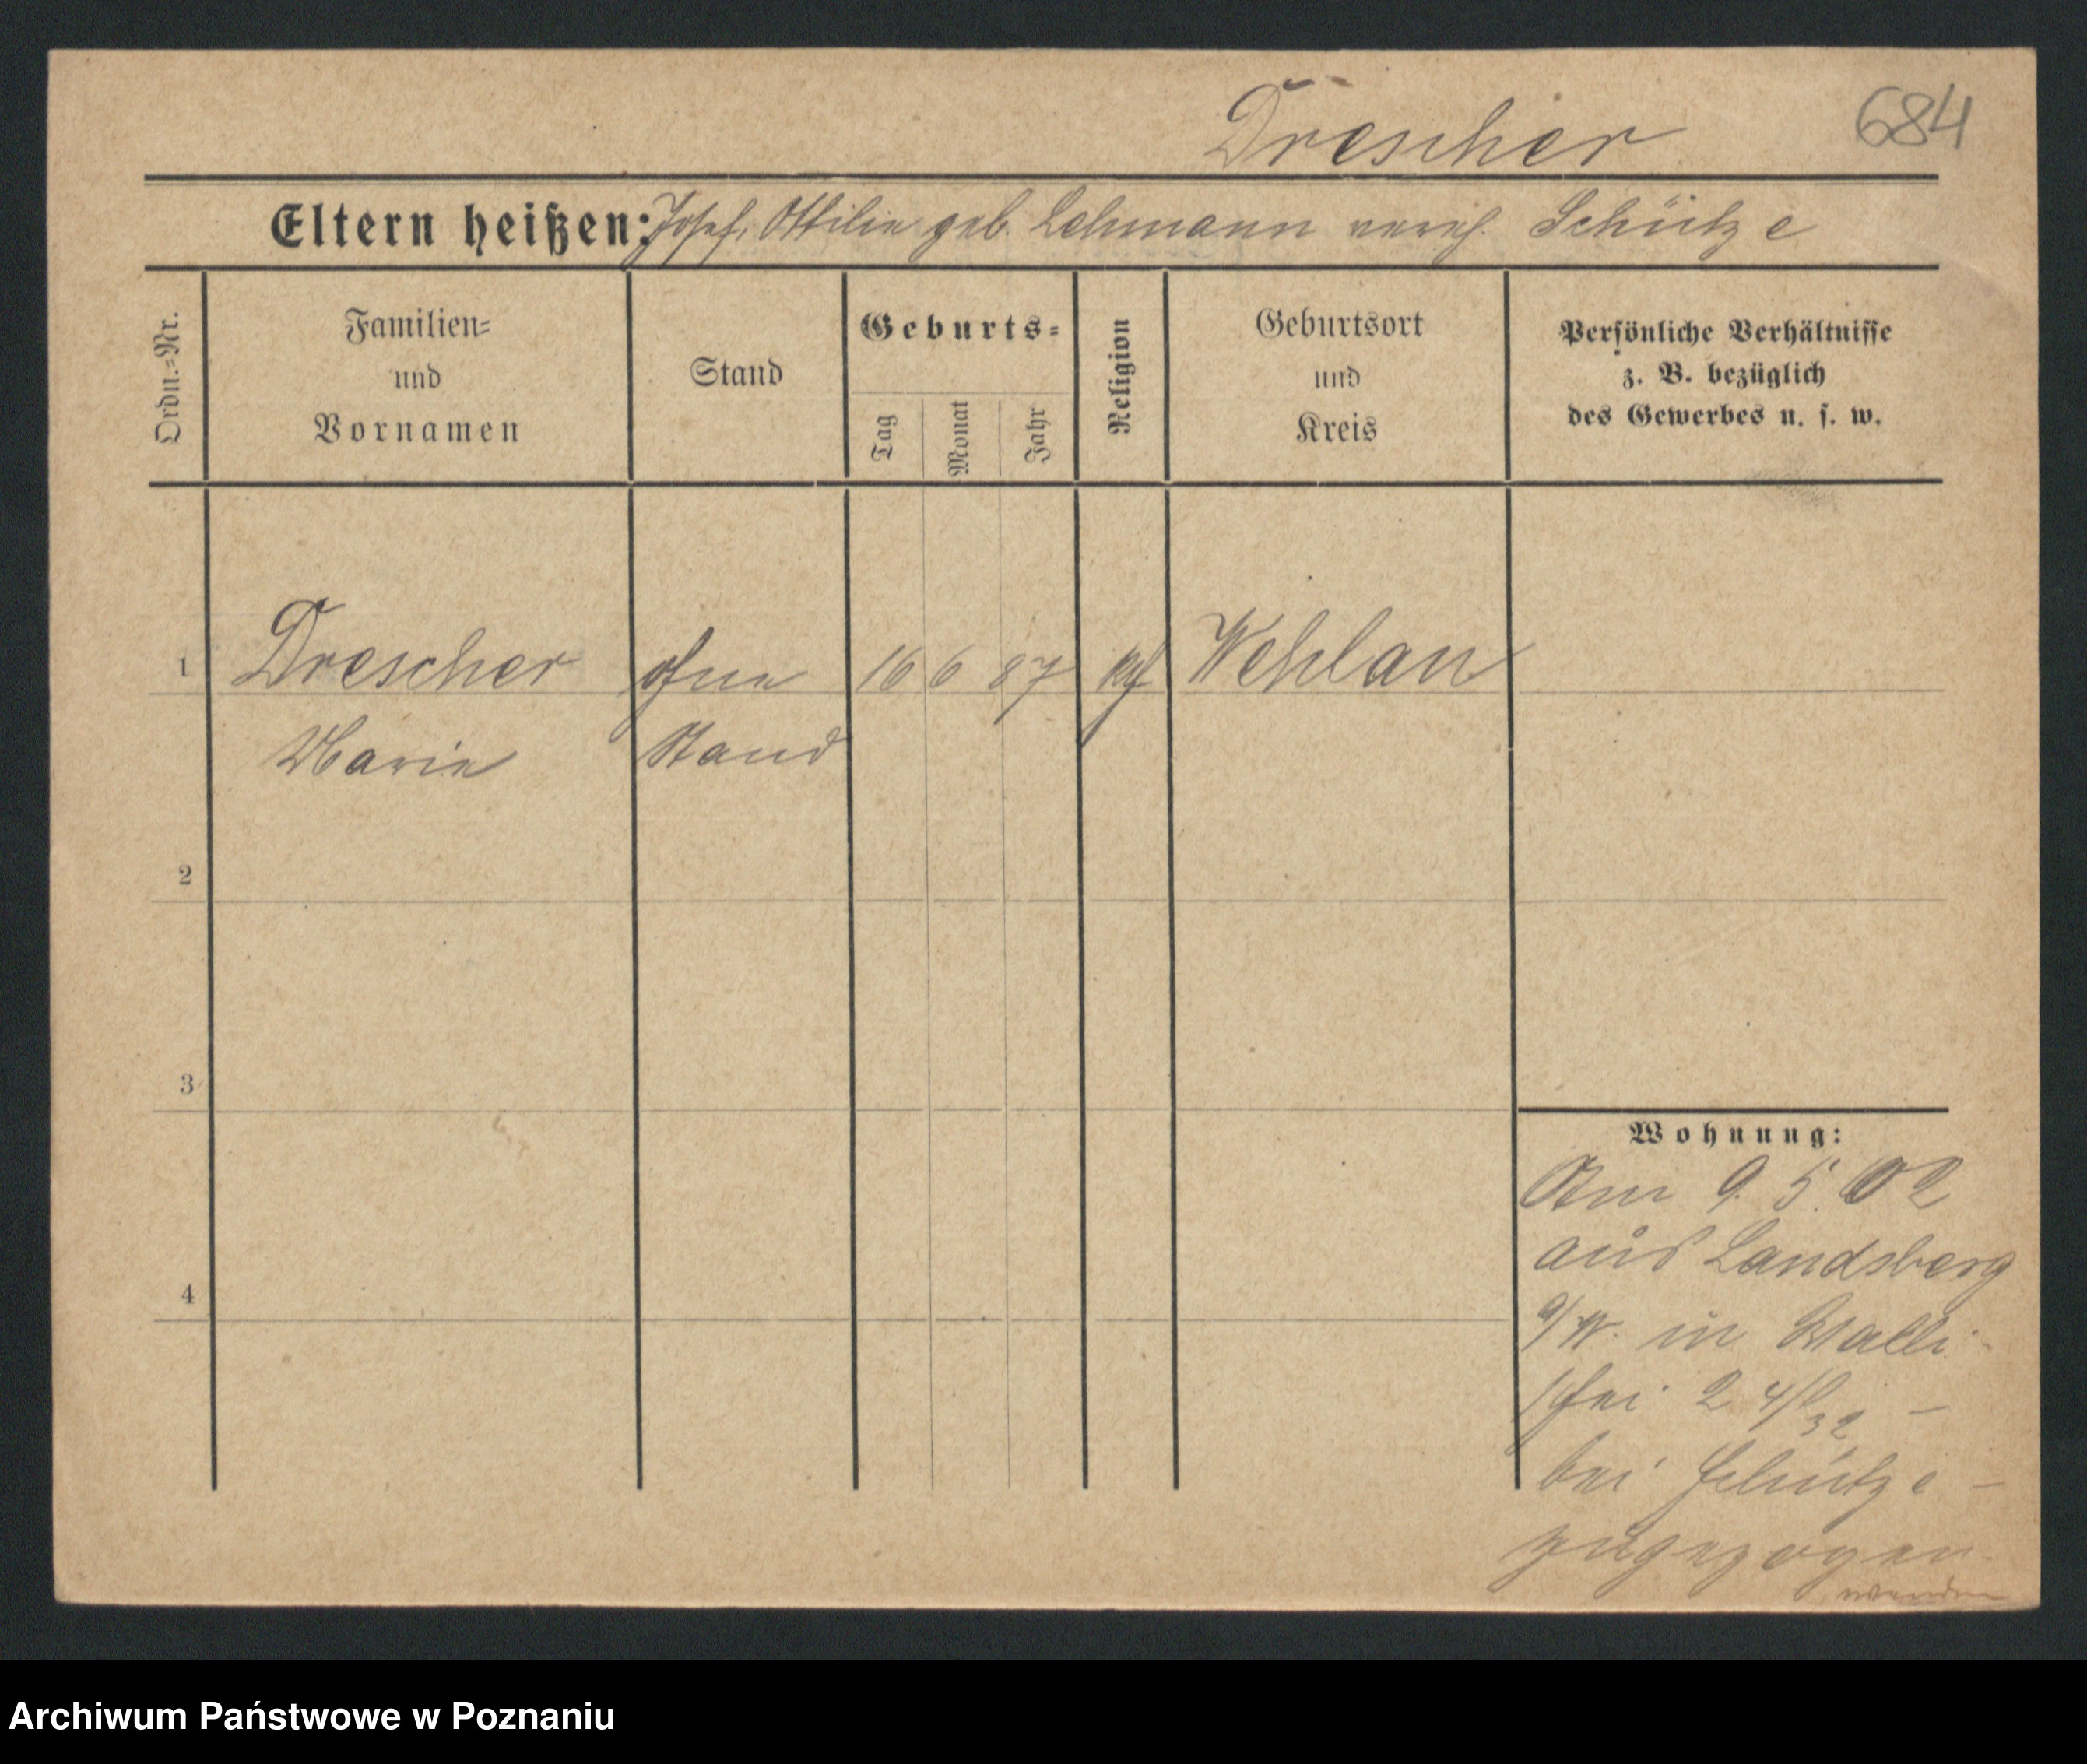 Drescher 684
Eltern heißen: Josef, Ottilie geb. Lehmann verehl. Schütze
Ordn.=Nr.
Familien=
und
Vornamen
Stand
Geburts=
Tag
Monat
Jahr
Religion
Geburtsort
und
Kreis
Persönliche Verhältnisse
z. B. bezüglich
des Gewerbes u. s. w.
1 Drescher ohne 16 6 87 Wehlan
Marie Stand
2
3
4
Wohnung:
Am 9. 5. 02
aus Landsberg
a/W. in Walli-
schei 2 4/
32 -
bei Schütze -
zugezogen.
wenden
Archiwum Państwowe w Poznaniu